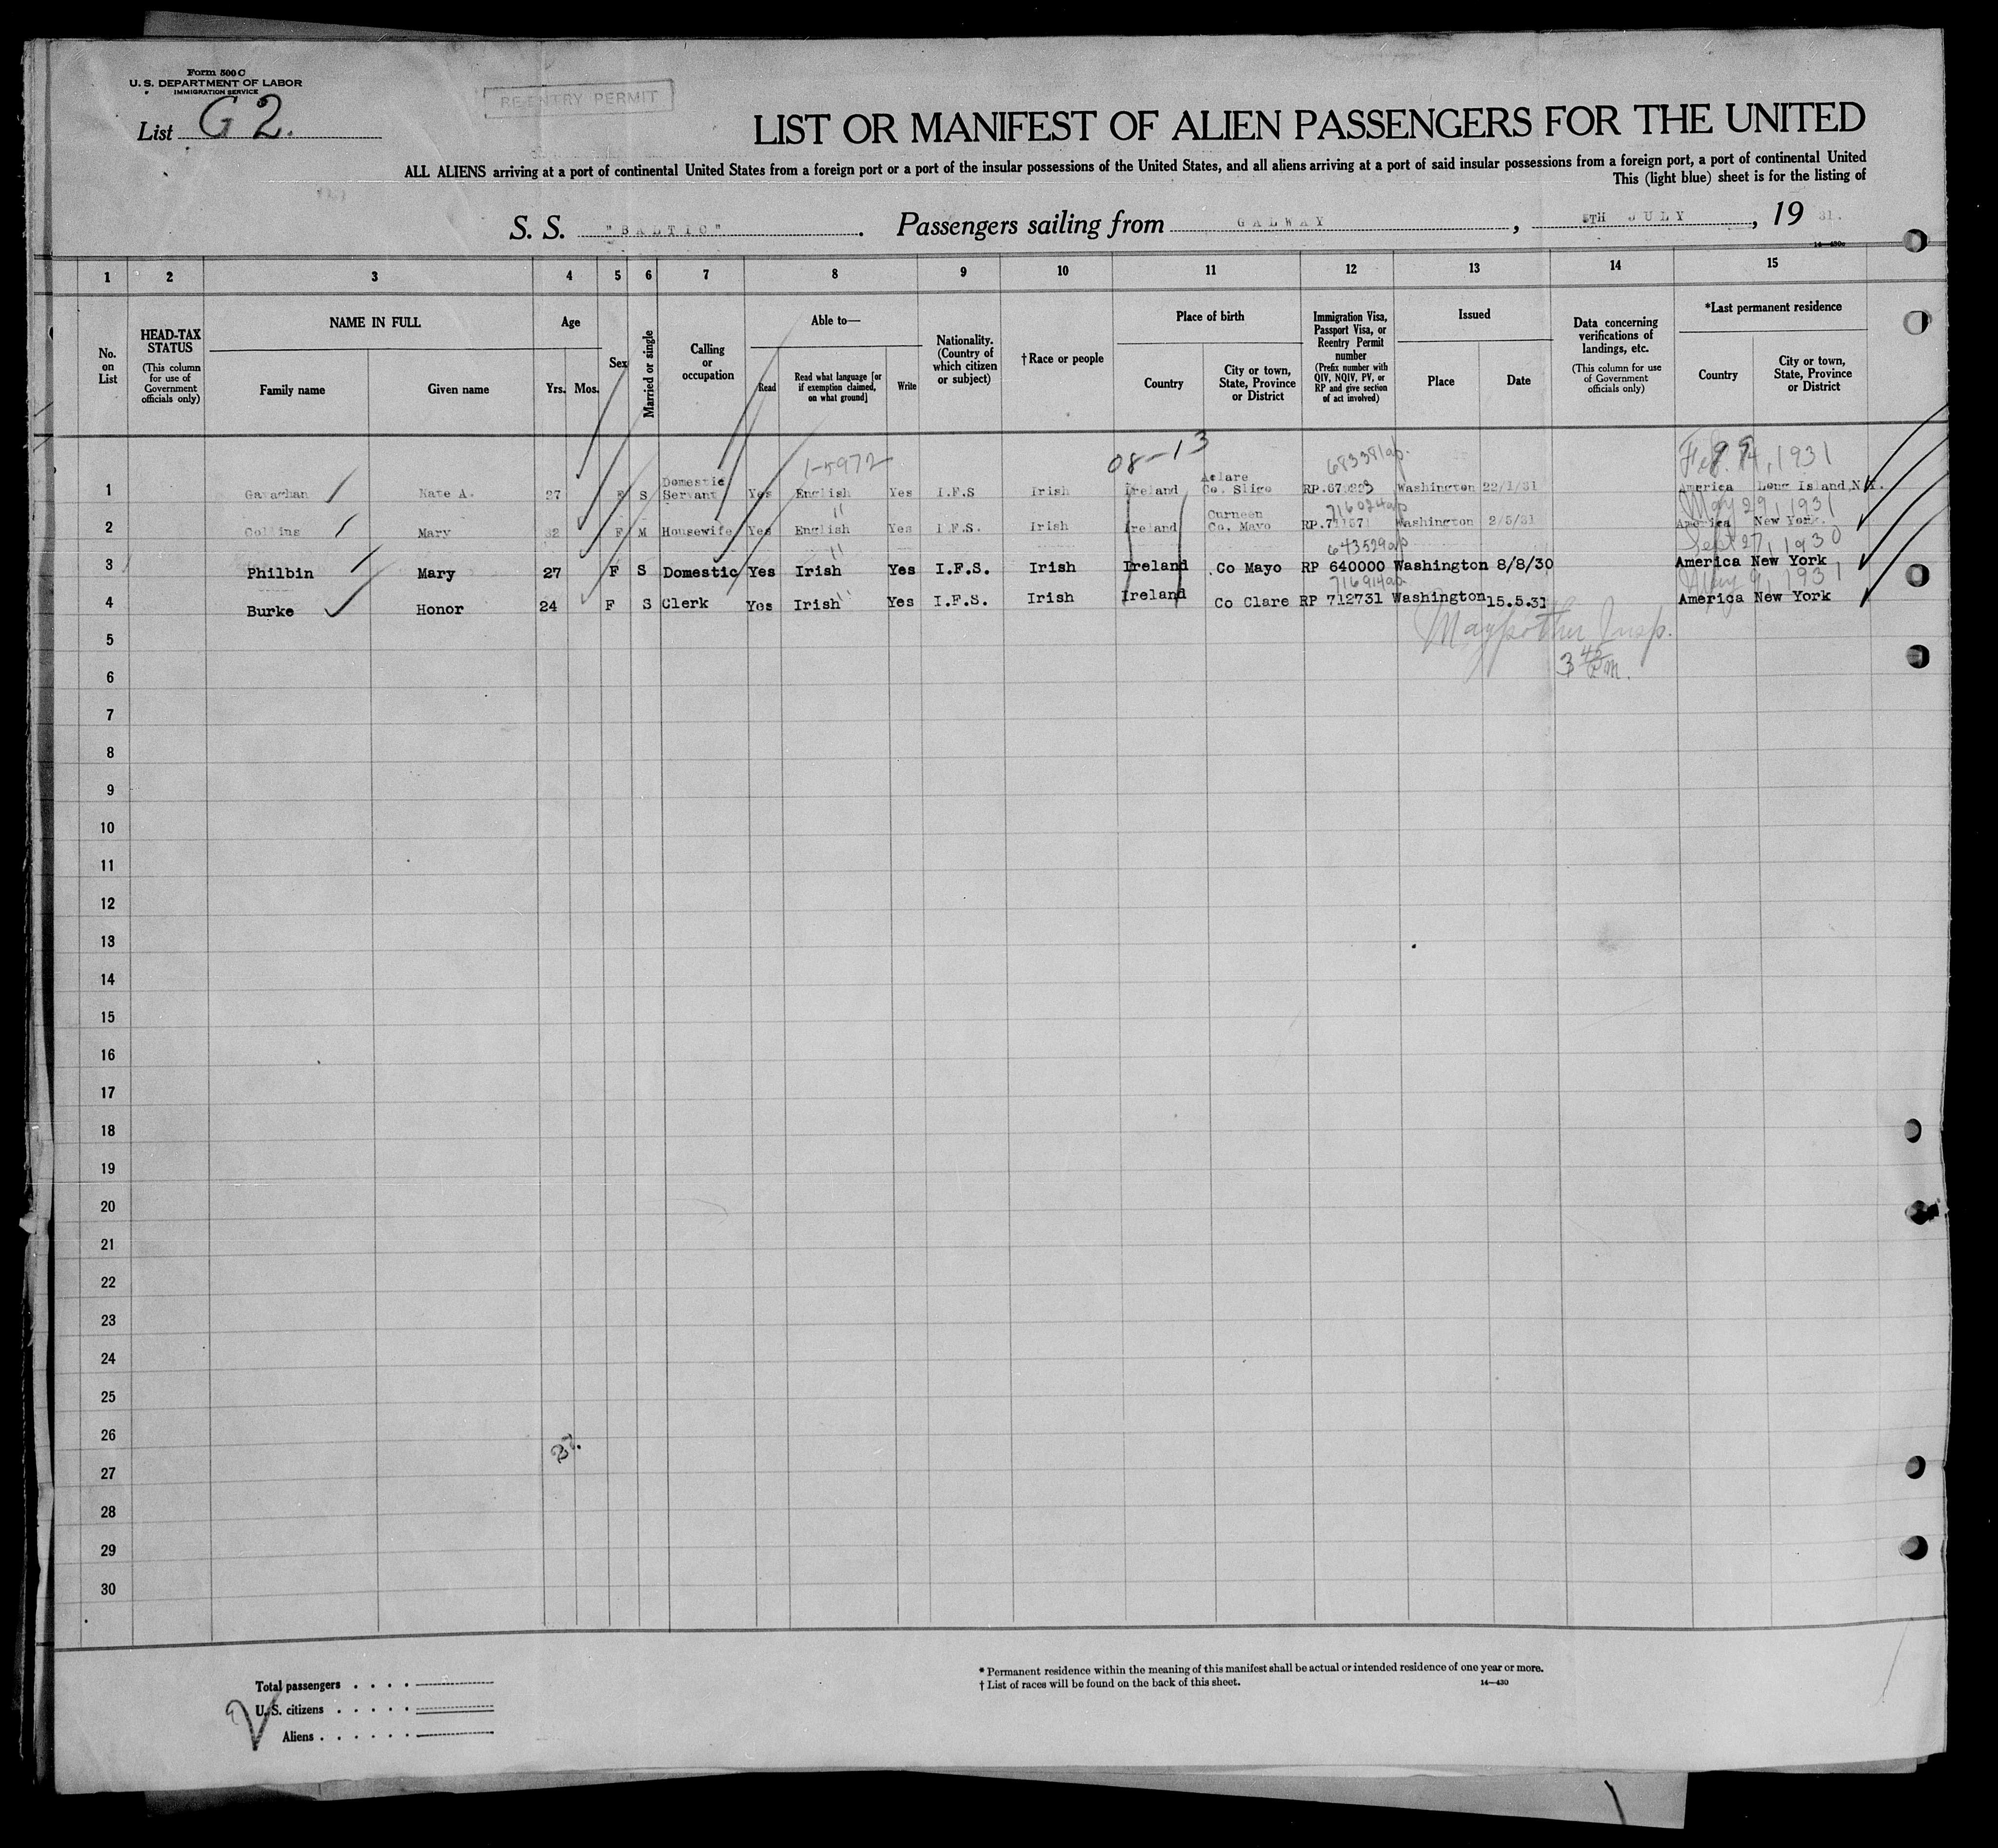 Form 500 C
U. S. DEPARTMENT OF LABOR
IMMIGRATION SERVICE
List G 2.
REENTRY PERMIT
LIST OR MANIFEST OF ALIEN PASSENGERS FOR THE UNITED
ALL ALIENS arriving at a port of continental United States from a foreign port or a port of the insular possessions of the United States, and all aliens arriving at a port of said insular possessions from a foreign port, a port of continental United
This (light blue) sheet is for the listing of
S. S. "BALTIC". Passengers sailing from GALWAY, 5TH JULY, 19 31.
14—430c
1 2 3 4 5 6 7 8 9 10 11 12 13 14 15
No. on List
HEAD-TAX STATUS
(This column for use of Government officials only)
NAME IN FULL
Family name Given name
Age
Yrs. Mos.
Sex
Married or single
Calling or occupation
Able to—
Read
Read what language [or if exemption claimed, on what ground]
Write
Nationality. (Country of which citizen or subject)
†Race or people
Place of birth
Country
City or town, State, Province or District
Immigration Visa, Passport Visa, or Reentry Permit number
(Prefix number with QIV, NQIV, PV, or RP and give section of act involved)
Issued
Place Date
Data concerning verifications of landings, etc.
(This column for use of Government officials only)
*Last permanent residence
Country
City or town, State, Province or District
08-13 683381ap. 1931
1 Kate A. 27 F S Domestic Servant Yes English Yes I.F.S Irish Ireland Aclare Co. Sligo Washington 22/1/31 America Long Island, N.Y.
716024ap May 29, 1931
2 Collins Mary 32 F M Housewife Yes English Yes I.F.S. Irish Ireland Curneen Co. Mayo Washington 2/5/31 America New York.
643529ap Sept 27, 1930
3 Philbin Mary 27 F S Domestic Yes Irish Yes I.F.S. Irish Ireland Co Mayo RP 640000 Washington 8/8/30 America New York
716914ap. May 9, 1931
4 Burke Honor 24 F S Clerk Yes Irish Yes I.F.S. Irish Ireland Co Clare RP 712731 Washington 15.5.31 America New York
5 Insp.
6
7
8
9
10
11
12
13
14
15
16
17
18
19
20
21
22
23
24
25
26
27
28
29
30
Total passengers . . . .
U. S. citizens . . . . .
Aliens . . . . . . .
* Permanent residence within the meaning of this manifest shall be actual or intended residence of one year or more.
† List of races will be found on the back of this sheet. 14—430